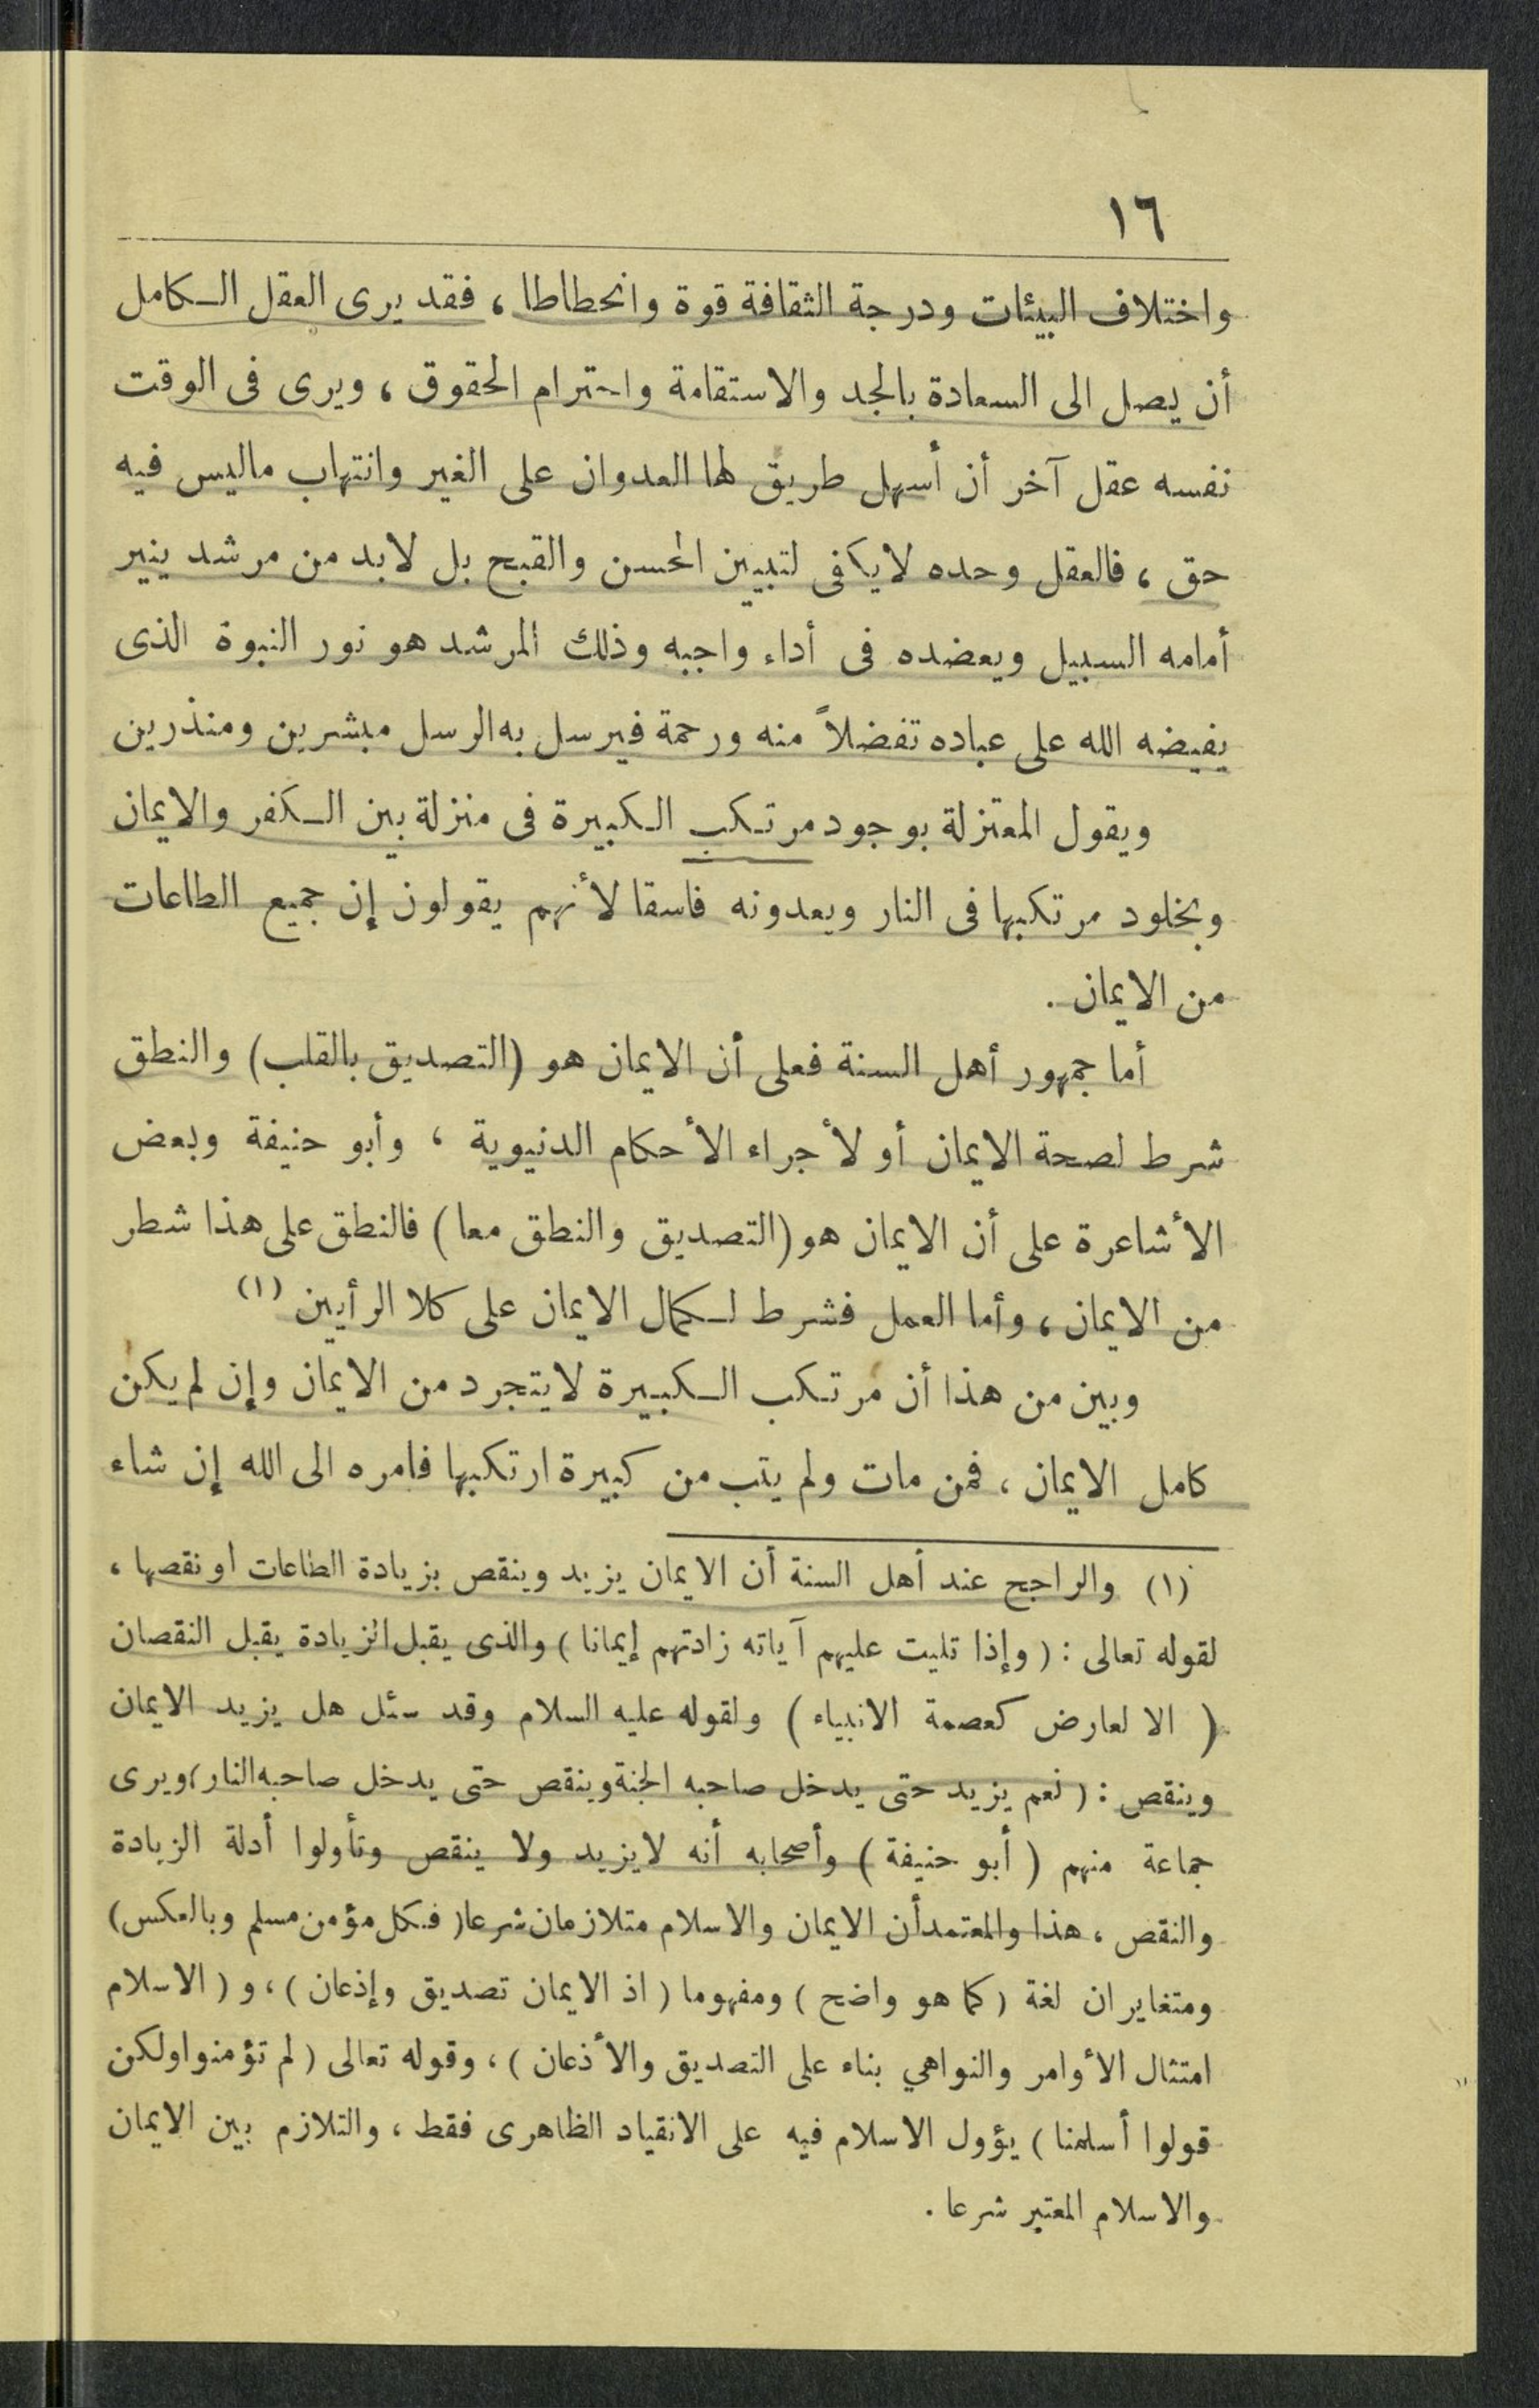 ١٦
واختلاف البيئات ودرجة الثقافة قوة وانحطاطا ، فقد يرى العقل الـكامل
أن يصل الى السعادة بالجد والاستقامة واحترام الحقوق ، ويرى فى الوقت
نفسه عقل آخر أن أسهل طريق لها العدوان على الغير وانتهاب ماليس فيه
حق ، فالعقل وحده لا يكفى لتبيين الحسن والقبح بل لابد من مرشد ينير
أمامه السبيل ويعضده فى أداء واجبه وذلك المرشد هو نور النبوة الذى
يفيضه الله على عباده تفضلاً منه ورحمة فيرسل به الرسل مبشرين ومنذرين
ويقول المعتزلة بوجود مرتـكب الـكبيرة فى منزلة بين الـكفر والايمان
وبخلود مرتكبها فى النار ويعدونه فاسقا لأنهم يقولون إن جميع الطاعات
من الايمان .
أما جمهور أهل السنة فعلى أن الايمان هو (التصديق بالقلب) والنطق
شرط لصحة الايمان أو لأجراء الأحكام الدنيوية ، وأبو حنيفة وبعض
الأشاعرة على أن الايمان هو (التصديق والنطق معا) فالنطق على هذا شطر
من الايمان ، وأما العمل فشرط لـكمال الايمان على كلا الرأيين (١)
وبين من هذا أن مرتـكب الـكبيرة لايتجرد من الايمان وإن لم يكن
كامل الايمان ، فمن مات ولم يتب من كبيرة ارتكبها فامره الى الله إن شاء
(١) والراجح عند أهل السنة أن الايمان يزيد وينقص بزيادة الطاعات او نقصها ،
لقوله تعالى : ( وإذا تليت عليهم آياته زادتهم إيمانا ) والذى يقبل الزيادة يقبل النقصان
( الا لعارض كعصمة الانبياء ) ولقوله عليه السلام وقد سئل هل يزيد الايمان
وينقص : ( نعم يزيد حتى يدخل صاحبه الجنة وينقص حتى يدخل صاحبه النار ) ويرى
جماعة منهم ( أبو حنيفة ) وأصحابه أنه لايزيد ولا ينقص وتأولوا أدلة الزيادة
والنقص ، هذا والمعتمدأن الايمان والاسلام متلازمان شرعا ( فـكل مؤمن مسلم وبالعكس )
ومتغايران لغة ( كما هو واضح ) ومفهوما ( اذ الايمان تصديق وإذعان ) ، و ( الاسلام
امتثال الأوامر والنواهي بناء على التصديق والأذعان ) ، وقوله تعالى ( لم تؤمنوا ولكن
قولوا أسلمنا ) يؤول الاسلام فيه على الانقياد الظاهرى فقط ، والتلازم بين الايمان
والاسلام المعتبر شرعا .